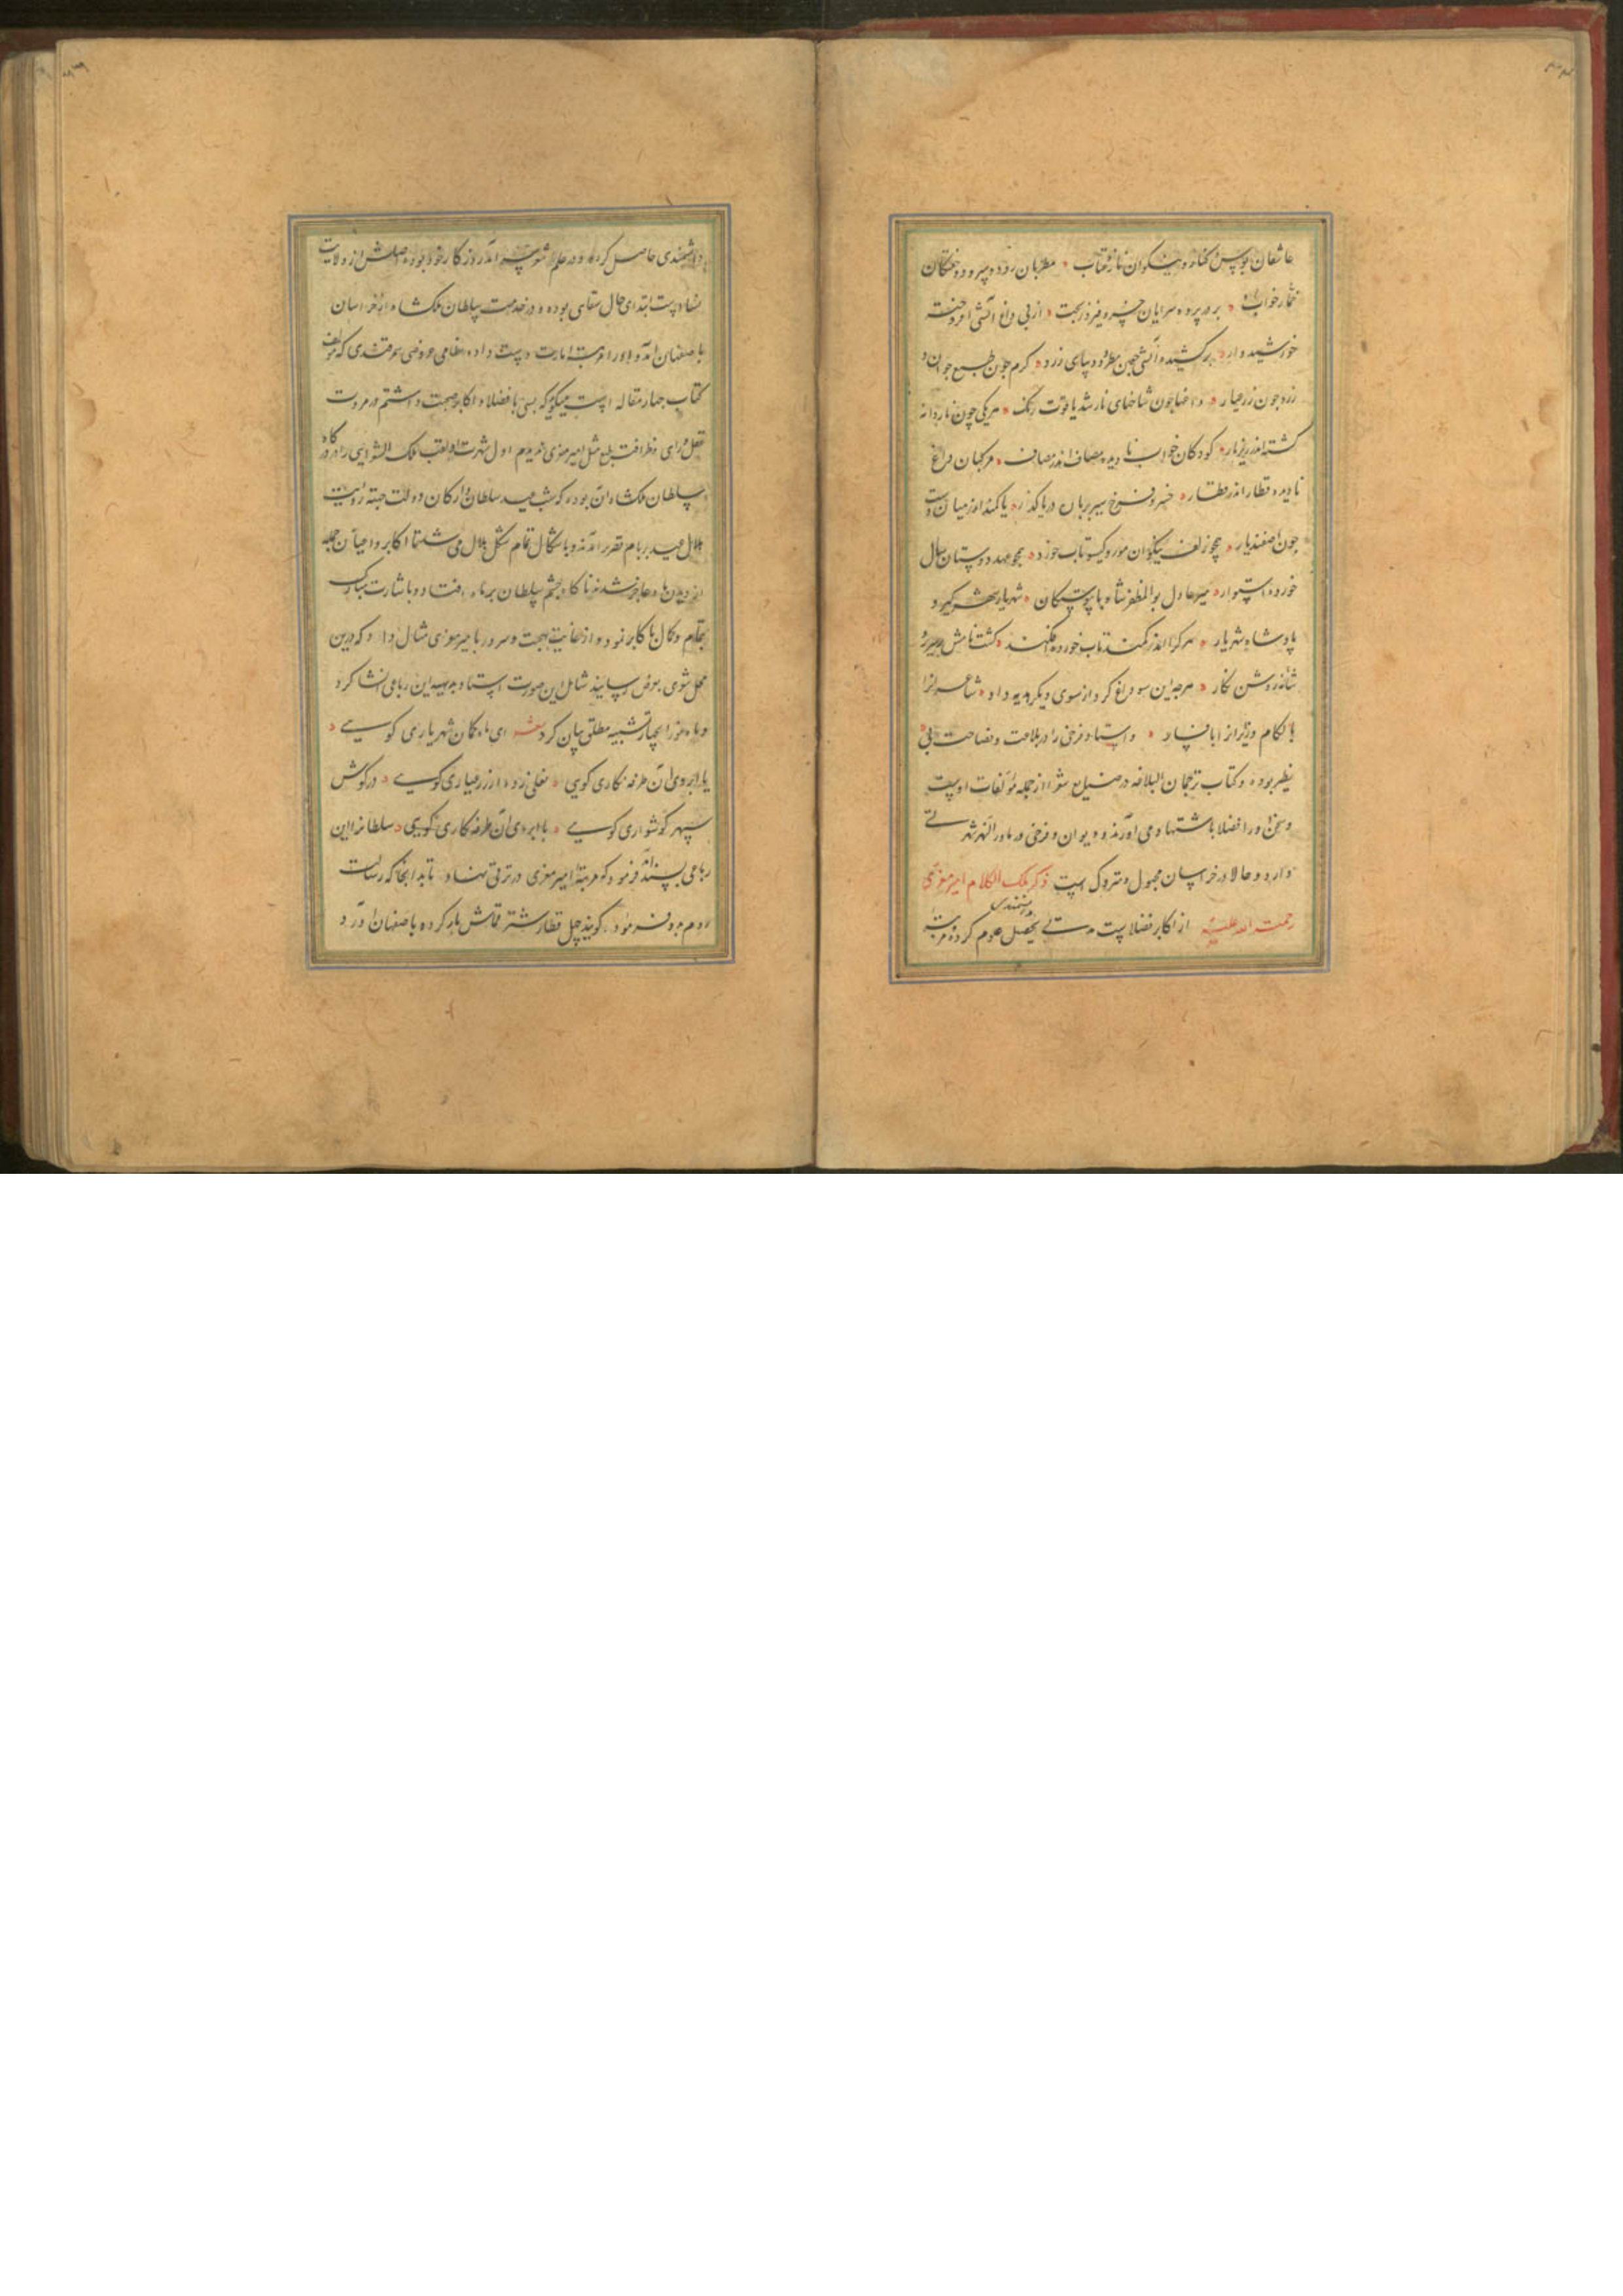 عاشقان بوس و کنار و نیکوان ناز و عتاب مطربان رود و سرود و خفتگان
خمار و خواب بر در پرده سرای خسرو فیروز بخت از پی داغ آتشی افروخته
خورشید وار برکشیده آتشی چون مطرد دیبای زرد گرم چون طبع جوان و
زرد چون زر عیار داغها چون شاخهای نار شد یاقوت رنگ هریکی چون ناردانه
گشته اندر زیر نار کودکان خواب نادیده مصاف اندر مصاف مرکبان داغ
نادیده قطار اندر قطار خسرو فرخ سیر بر باره دریا گذر با کمند اندر میان دشت
چون اصفندیار همچو زلف نیکوان مورد گیسو تاب خورد همچو عهد دوستان سال
خورده استوار میر عادل بوالمظفر شاه با پیوستگان شهریار شهرگیر و
پادشاه شهریار هر کرا اندر کمند تاب خورده افکند گشت نامش بر سرین و
شانه روشن نگار هرچه زین سو داغ کرد از سوی دیگر هدیه داد شاعرانرا
بالگام و زایرانرا بافسار و استاد فرخی را در بلاغت و فصاحت بی
نظیر بوده و کتاب ترجمان البلاغه در صنایع شعر از جمله مؤلفات اوست
و سخن او را فضلا باستشهاد می آورند و دیوان فرخی در ماورالنهر شهرتی
دارد و حالا در خراسان مجهول و متروک است ذکر ملک الکلام امیر معزی
رحمة الله علیه از اکابر فضلاست مدتی تحصیل علوم کرده مرتبه
دانشمندی
دانشمندی حاصل کرده و در علم شعر سرآمد روزگار خود بوده اصلش از ولایت
نساست ابتدای حال سقای بوده و در خدمت سلطان ملکشاه از خراسان
باصفهان آمد و او را مرتبه امارت دست داده نظامی عروضی سمرقندی که مؤلف
کتاب چهار مقاله است میگوید که بسی با فضلا و اکابر صحبت داشتم در مروت
عقل و رای و ظرافت طبع مثل امیر معزی ندیدم اول شهرت او لقب ملک الشعرایی را در درگاه
سلطان ملکشاه آن بود که شب عید سلطان و ارکان دولت جهته رؤیت
هلال عید بر بام قصر آمدند و باشکال تمام شکل هلال می شد تا اکابر و اعیان جمله
از دیدن ماه عاجز شدند ناگاه چشم سلطان بر ماه افتاد و باشارت مبارک
بتمام و کمال باکابر نمود و از غایت بهجت و سرور با میر معزی مثال داد که درین
محل شعری بعرض رساند شامل این صورت استاد بدیهه این رباعی انشا کرد
و ماه نو را بچهار تشبیه مطلق بیان کرد شعر ای ماه کمان شهریاری گویی
یا ابروی آن طرفه نگاری گویی نعلی زده از زر عیاری گویی در گوش
سپهر گوشواری گویی یا ابروی آن طرفه نگاری گویی سلطانرا این
رباعی پسند آمد فرمود که مرتبه امیر معزی در ترقی نهاد تا بدانجا که رسالت
روم بدو فرمود گویند چهل قطار شتر قماش بار کرده باصفهان آورد